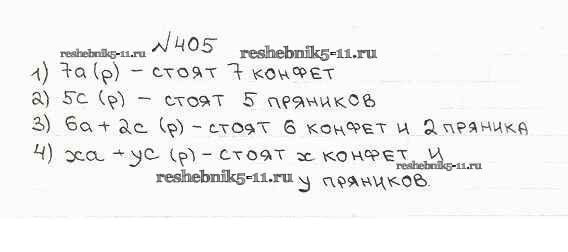 №405
reshebnik5-11.ru reshebnik5-11.ru
1) 7а (р) – стоят 7 конфет
2) 5с (р) – стоят 5 пряников
3) 6а + 2с (р) – стоят 6 конфет и 2 пряника
4) ха + ус (р) – стоят х конфет и
reshebnik5-11.ru
reshebnik5-11.ru у пряников.